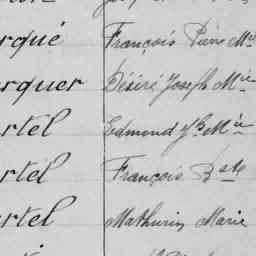 rqué François Pierre Mie
rquer Désiré Joseph Mie
rtel Edmond Jh Mie
rtel François Bste
rtel Mathurin Marie